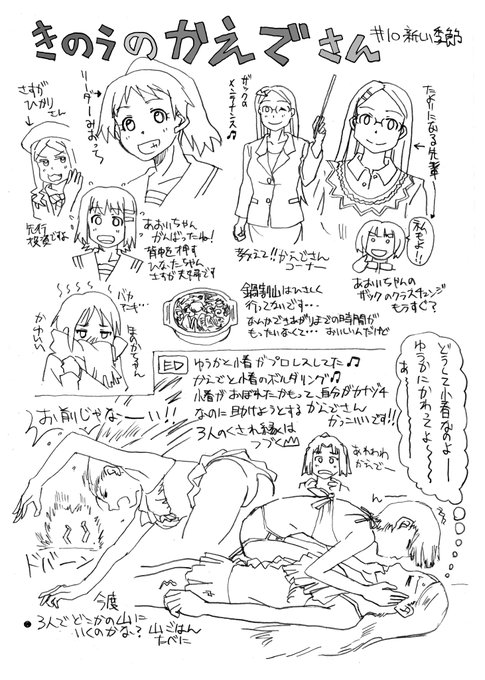 きのうのかえでさん
#10 新しい季節
さすが
ひかり
さん
リーダーみおっち
ザックの
メンテナンス♪
たよりになる先輩
私もよ!!
先行
投資ですね
あおいちゃん
がんばったね!
背中を押す
ひなたちゃん
さすが天干です
教えて!!かえでさん
コーナー
あおいちゃんの
ザックのクラスチェンジ
もうすぐ?
バカ
ヤロー…
かわいい
ほのかちゃん
鍋割山はひさしく
行ってないです…
なんかできあがりまでの時間が
もったいなくて… おいしいんだけど
ED
ゆうかと小春がプロレスしてた♫
かえでと小春のボルダリング♪
小春がおぼれたかもって、自分がカナヅチ
なのに助けようとするかえでさん
かっこいいです!!
3人のくされ縁は
つづく
どうして小春なのよー
ゆうかにかわってよ〜〜
ぁ〜
お前じゃなーい!!
あわわわ
かえで…
ん
ドバーン
今度
●3人でどこかの山に
いくのかな? 山ごはん
たべに